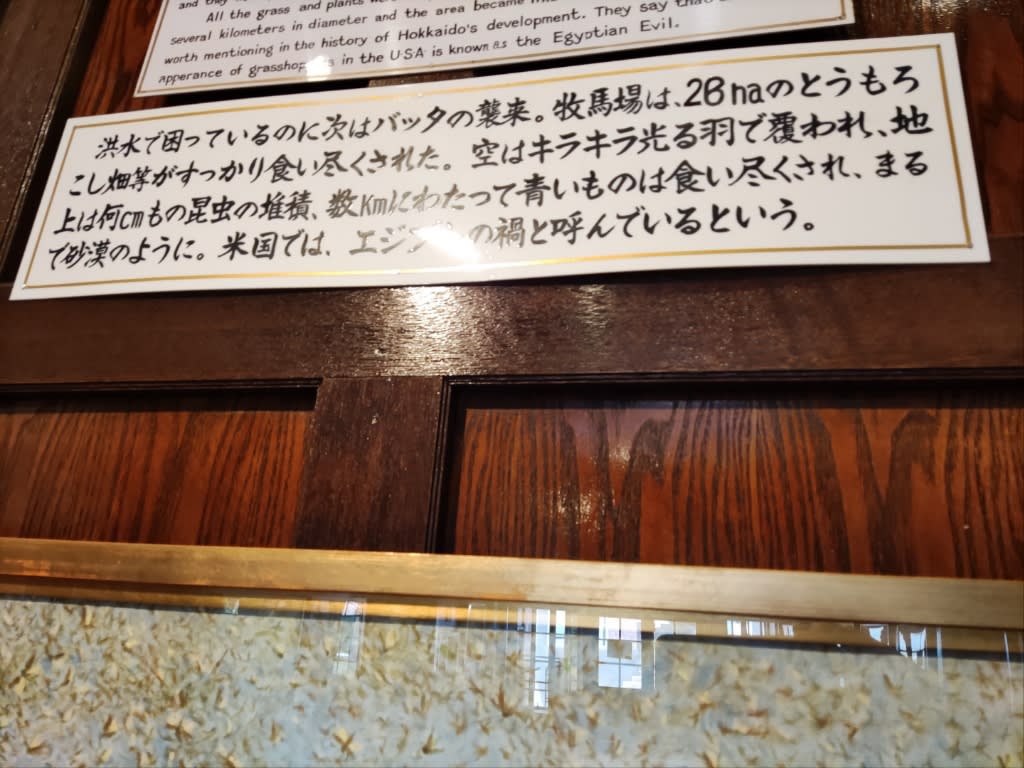 All the grass and plants
several kilometers in diameter and the area became
worth mentioning in the history of Hokkaido's development. They say that
apperance of grasshoppers in the U·S·A· is known as the Egyptian Evil.
洪水で困っているのに次はバッタの襲来。牧馬場は、28haのとうもろ
こし畑等がすっかり食い尽くされた。空はキラキラ光る羽で覆われ、地
上は何cmもの昆虫の堆積、数Kmにわたって青いものは食い尽くされ、まる
で砂漠のように。米国では、エジプトの禍と呼んでいるという。